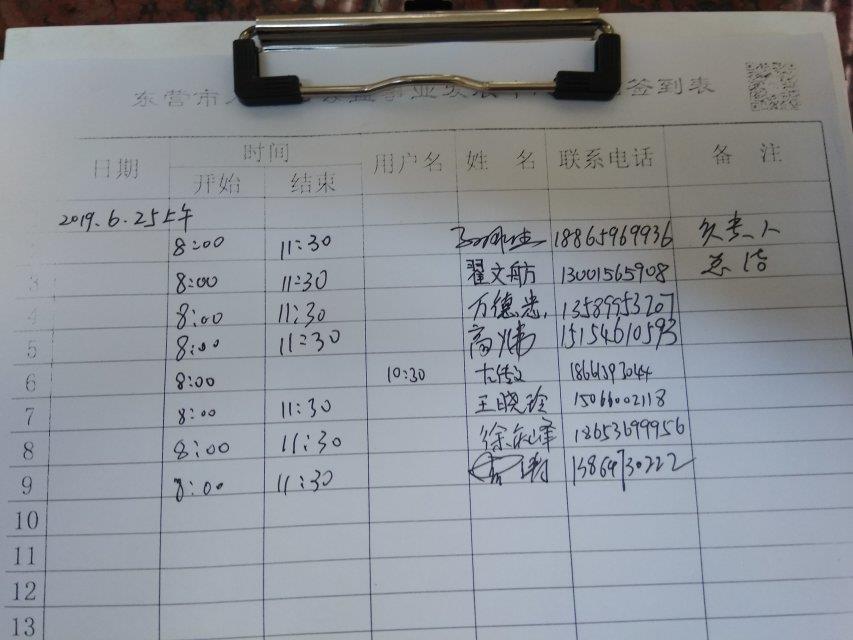 东营市 业发展 签到表
日期 时间 用户名 姓 名 联系电话 备 注
开始 结束
2019.6.25上午
8:00 11:30 18865969936 负责人
3 8:00 11:30 翟文舫 13001565908
4 8:00 11:30 万德忠 13589953207
5 8:00 11:30 高炜 15154610593
6 8:00 10:30
7 8:00 11:30 王晓玲 15066002118
8 8:00 11:30 18653699956
9 8:00 11:30
10
11
12
13